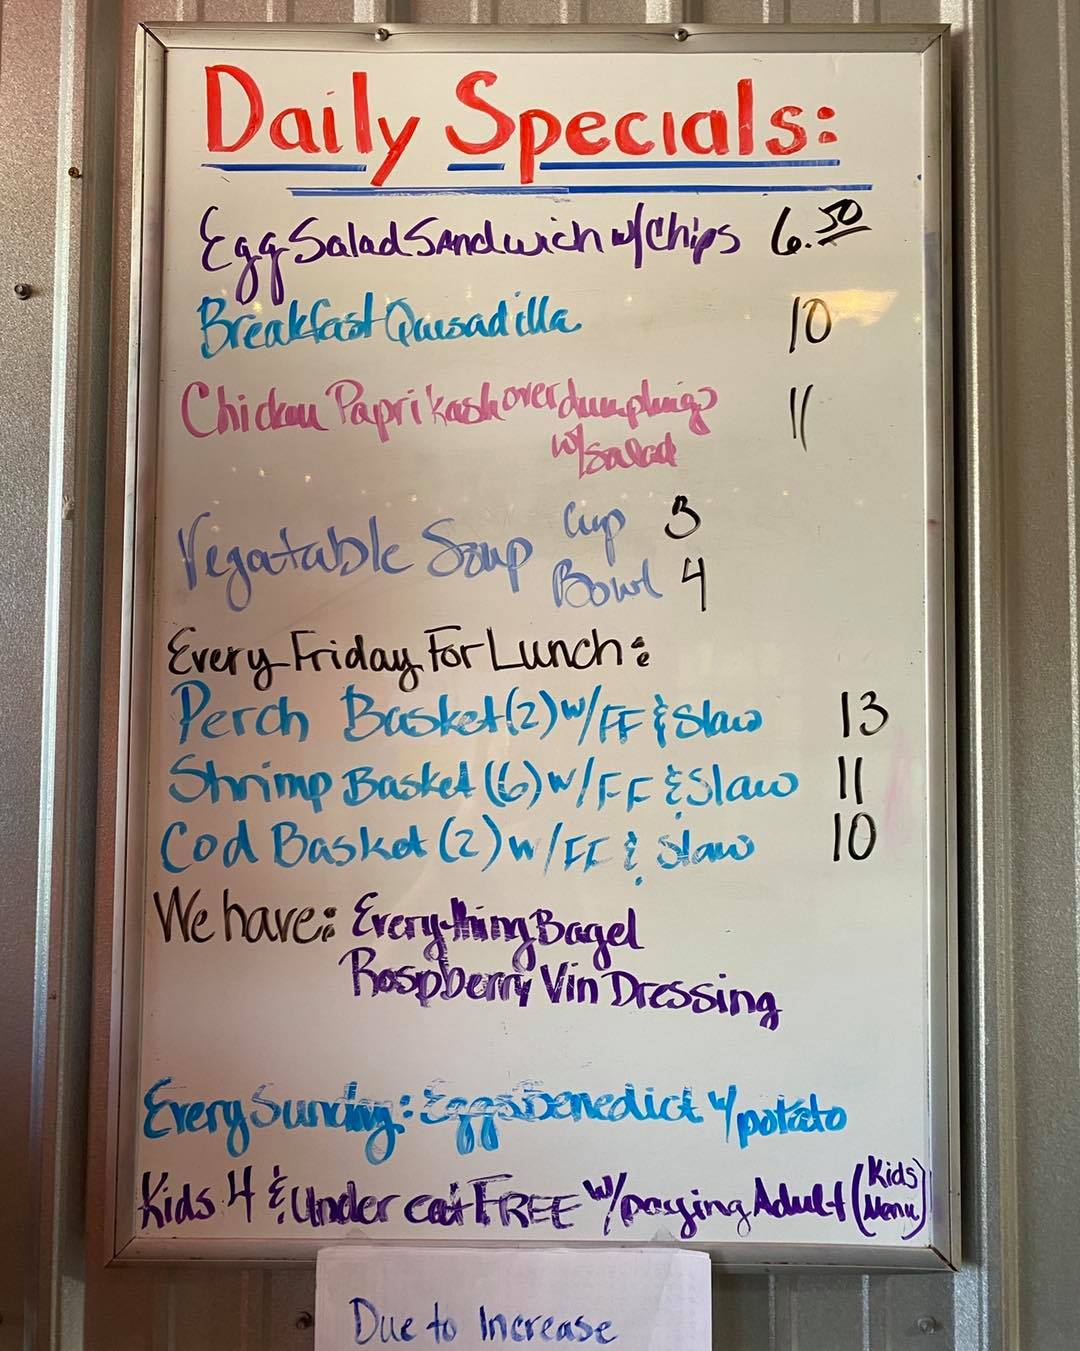 Daily Specials:
Egg Salad Sandwich w/ Chips 6.50
Breakfast Quesadilla 10
Chicken Paprikash over dumplings 11
w/ salad
Vegatable Soup Cup 3
Bowl 4
Every Friday For Lunch:
Perch Basket (2) w/ FF & Slaw 13
Shrimp Basket (6) w/ FF & Slaw 11
Cod Basket (2) w/ FF & Slaw 10
We have: Everything Bagel
Raspberry Vin Dressing
Every Sunday: Eggs Benedict w/ potato
Kids 4 & Under eat FREE w/ paying Adult (Kids Menu)
Due to Increase